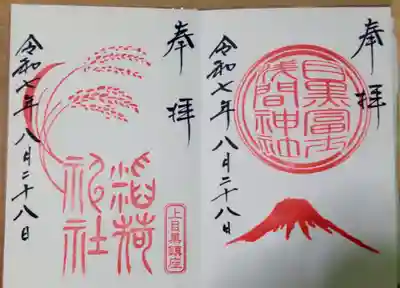 奉拝
目黒富士
浅間神社
令和七年 八月二十八日
奉拝
稲荷
神社
上目黒鎮座
令和七年 八月二十八日